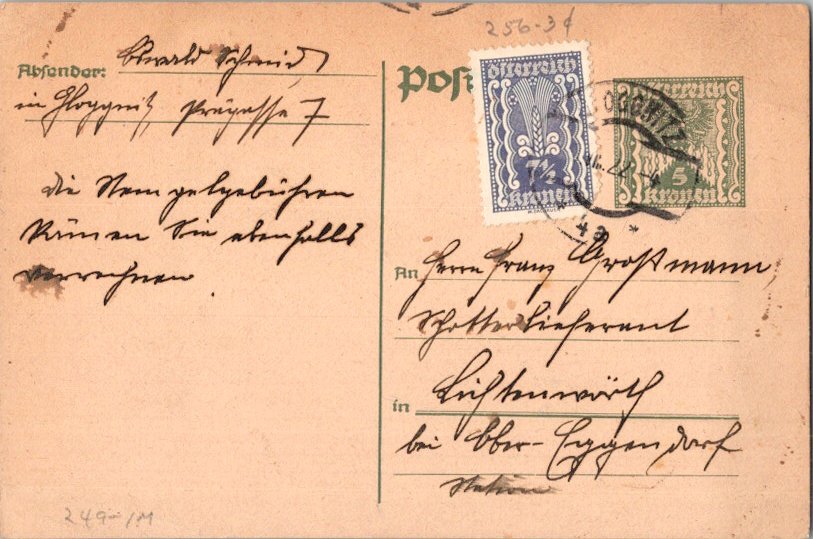 256-3¢
Absender: Oswald Schmid
in Gloggnitz Prägasse 7
Die Stempelgebühren
können Sie ebenfalls
verrechnen.
249-/M
Post
österreich
7½
kronen
GLOGGNITZ
22-4
* 4a *
österreich
5
kronen
An Herrn Franz Großmann,
Schotterlieferant
in Lichtenwörth
bei Ober-Eggendorf
Station